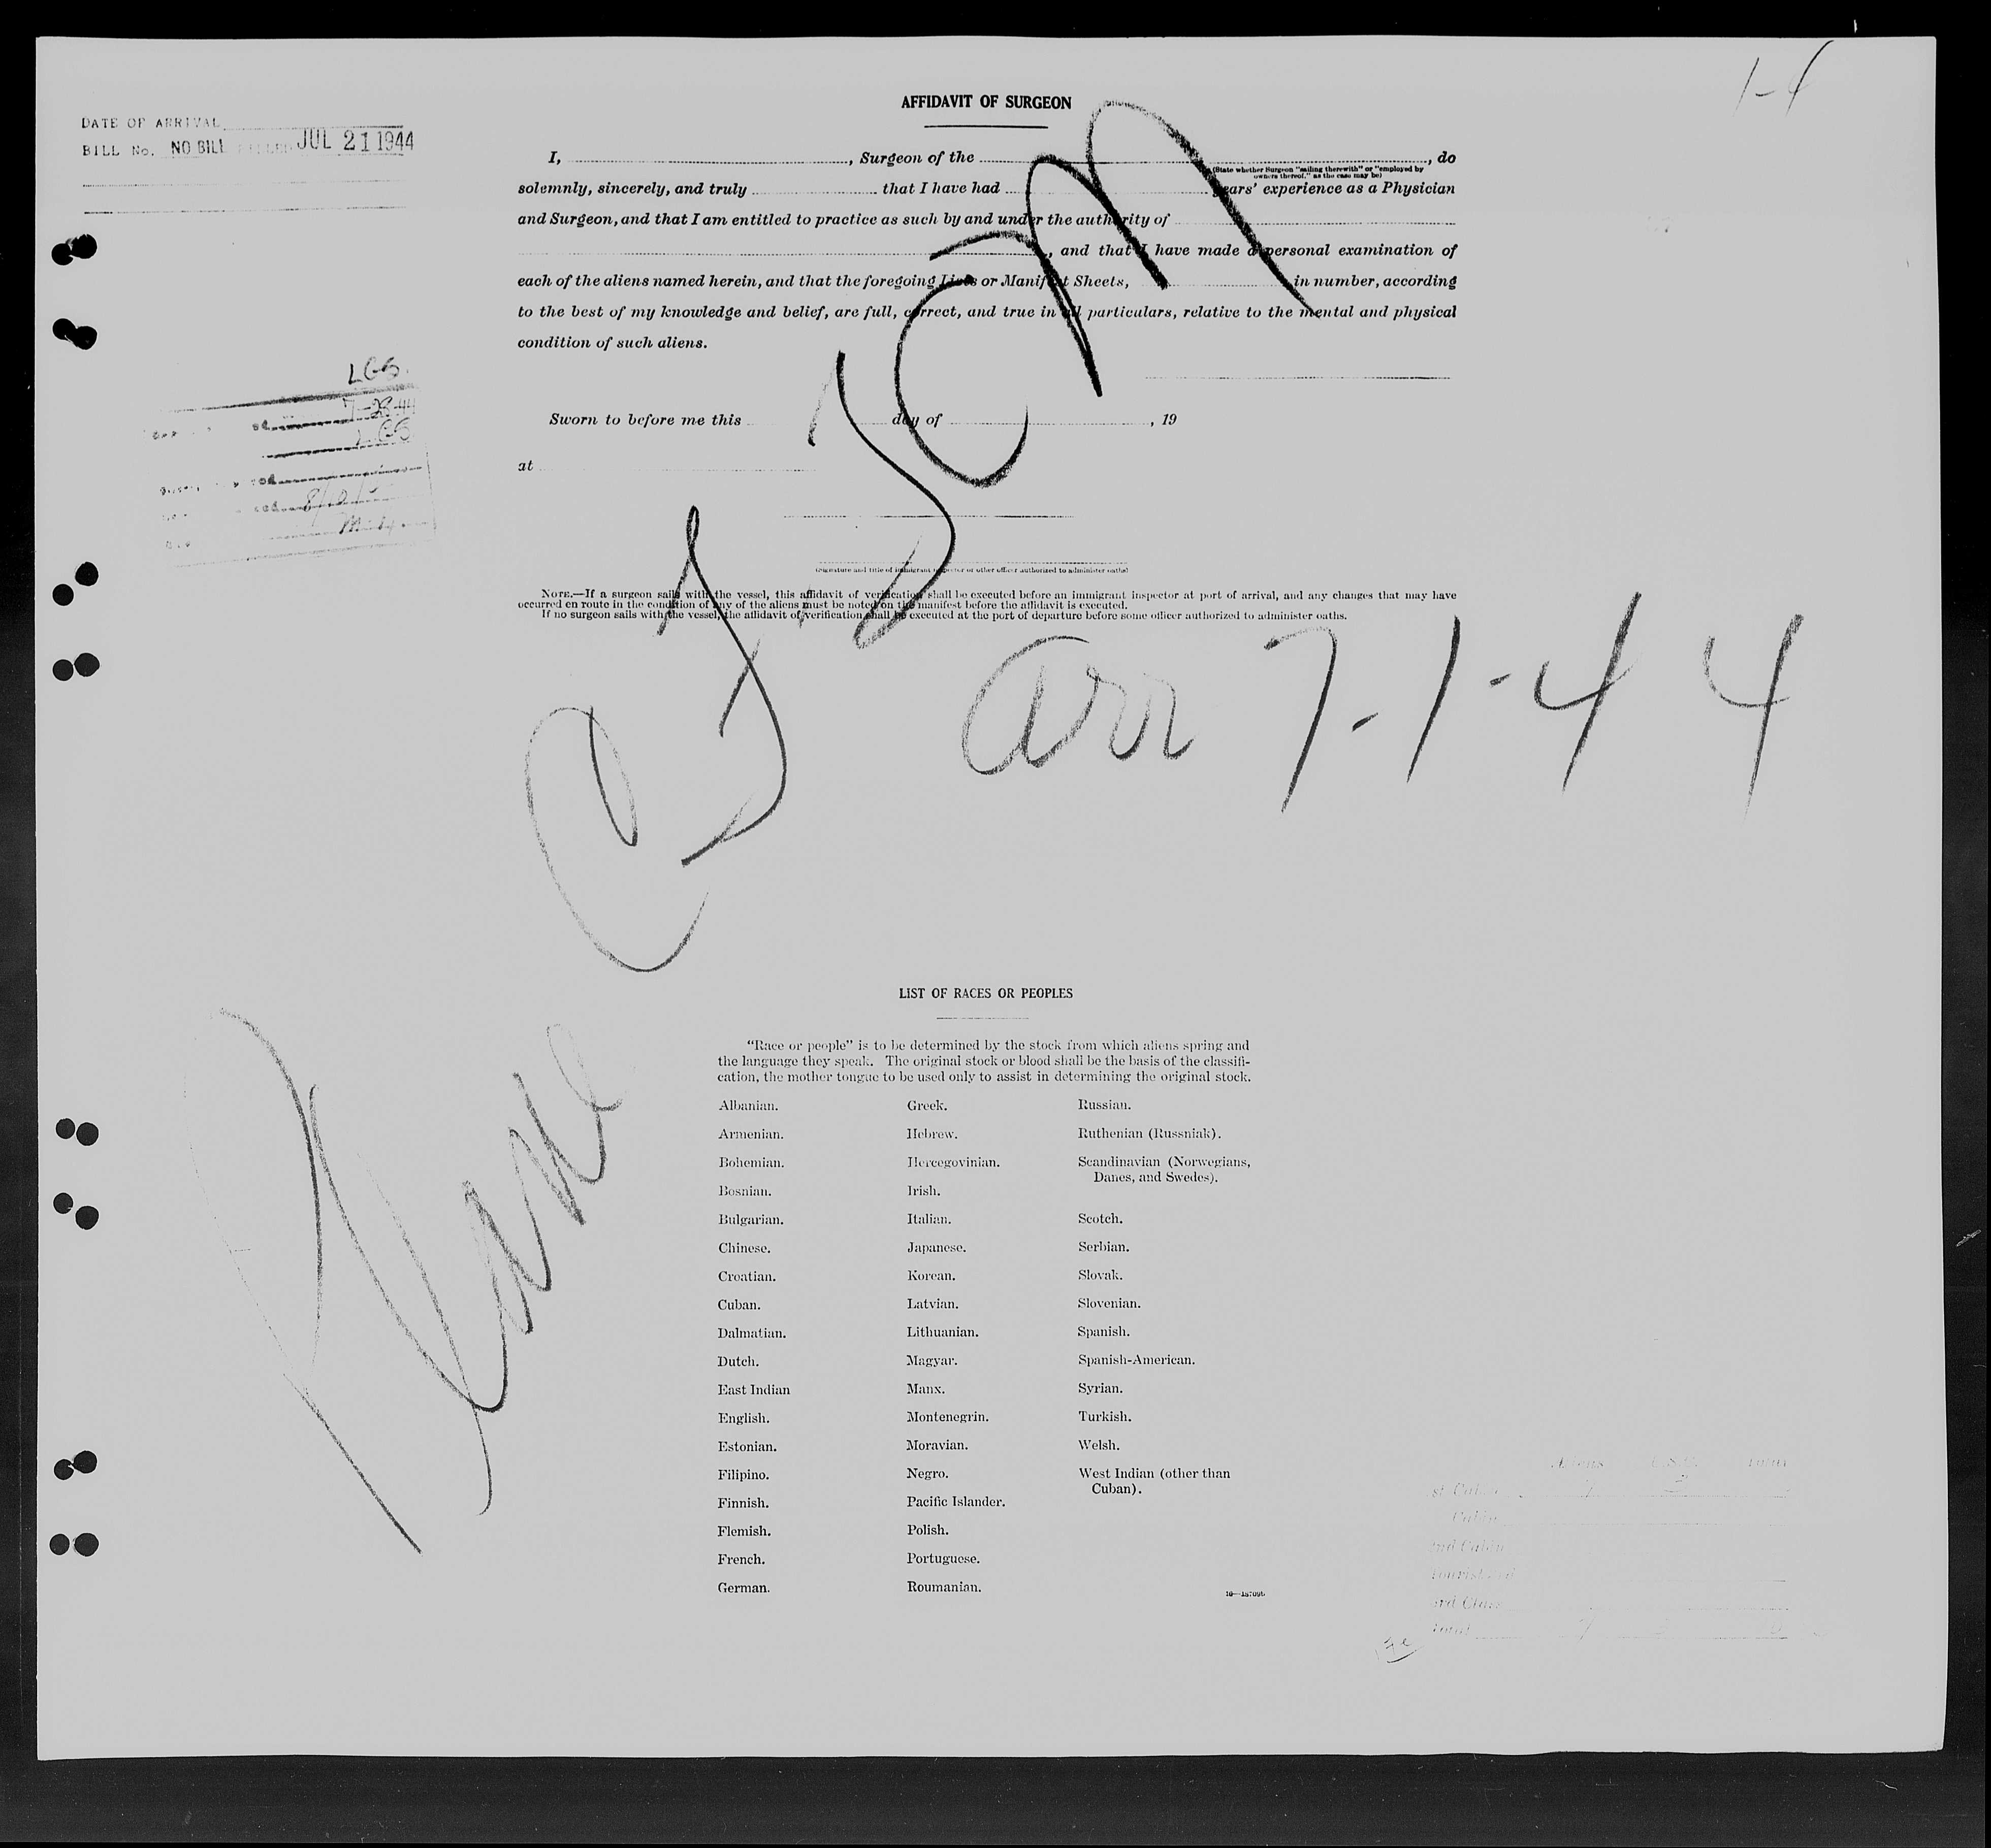 1-4
AFFIDAVIT OF SURGEON
DATE OF ARRIVAL
BILL No. NO BILL FILED JUL 21 1944
I, , Surgeon of the , do
(State whether Surgeon "sailing therewith" or "employed by
owners thereof," as the case may be)
solemnly, sincerely, and truly that I have had years' experience as a Physician
and Surgeon, and that I am entitled to practice as such by and under the authority of
, and that I have made a personal examination of
each of the aliens named herein, and that the foregoing Lists or Manifest Sheets, in number, according
to the best of my knowledge and belief, are full, correct, and true in all particulars, relative to the mental and physical
condition of such aliens.
LGS.
7-28-44
LGS
Sworn to before me this day of , 19
at
(Signature and title of immigrant inspector or other officer authorized to administer oaths)
NOTE.—If a surgeon sails with the vessel, this affidavit of verification shall be executed before an immigrant inspector at port of arrival, and any changes that may have
occurred en route in the condition of any of the aliens must be noted on the manifest before the affidavit is executed.
If no surgeon sails with the vessel, the affidavit of verification shall be executed at the port of departure before some officer authorized to administer oaths.
arr 7-1-44
Plane
LIST OF RACES OR PEOPLES
"Race or people" is to be determined by the stock from which aliens spring and
the language they speak. The original stock or blood shall be the basis of the classifi-
cation, the mother tongue to be used only to assist in determining the original stock.
Albanian. Greek. Russian.
Armenian. Hebrew. Ruthenian (Russniak).
Bohemian. Hercegovinian. Scandinavian (Norwegians,
Danes, and Swedes).
Bosnian. Irish.
Bulgarian. Italian. Scotch.
Chinese. Japanese. Serbian.
Croatian. Korean. Slovak.
Cuban. Latvian. Slovenian.
Dalmatian. Lithuanian. Spanish.
Dutch. Magyar. Spanish-American.
East Indian Manx. Syrian.
English. Montenegrin. Turkish.
Estonian. Moravian. Welsh.
Filipino. Negro. West Indian (other than
Cuban).
Finnish. Pacific Islander.
Flemish. Polish.
French. Portuguese.
German. Roumanian.
Aliens U.S.C. Total
Cabin
2nd Cabin
Tourist
3rd Class
Total 7